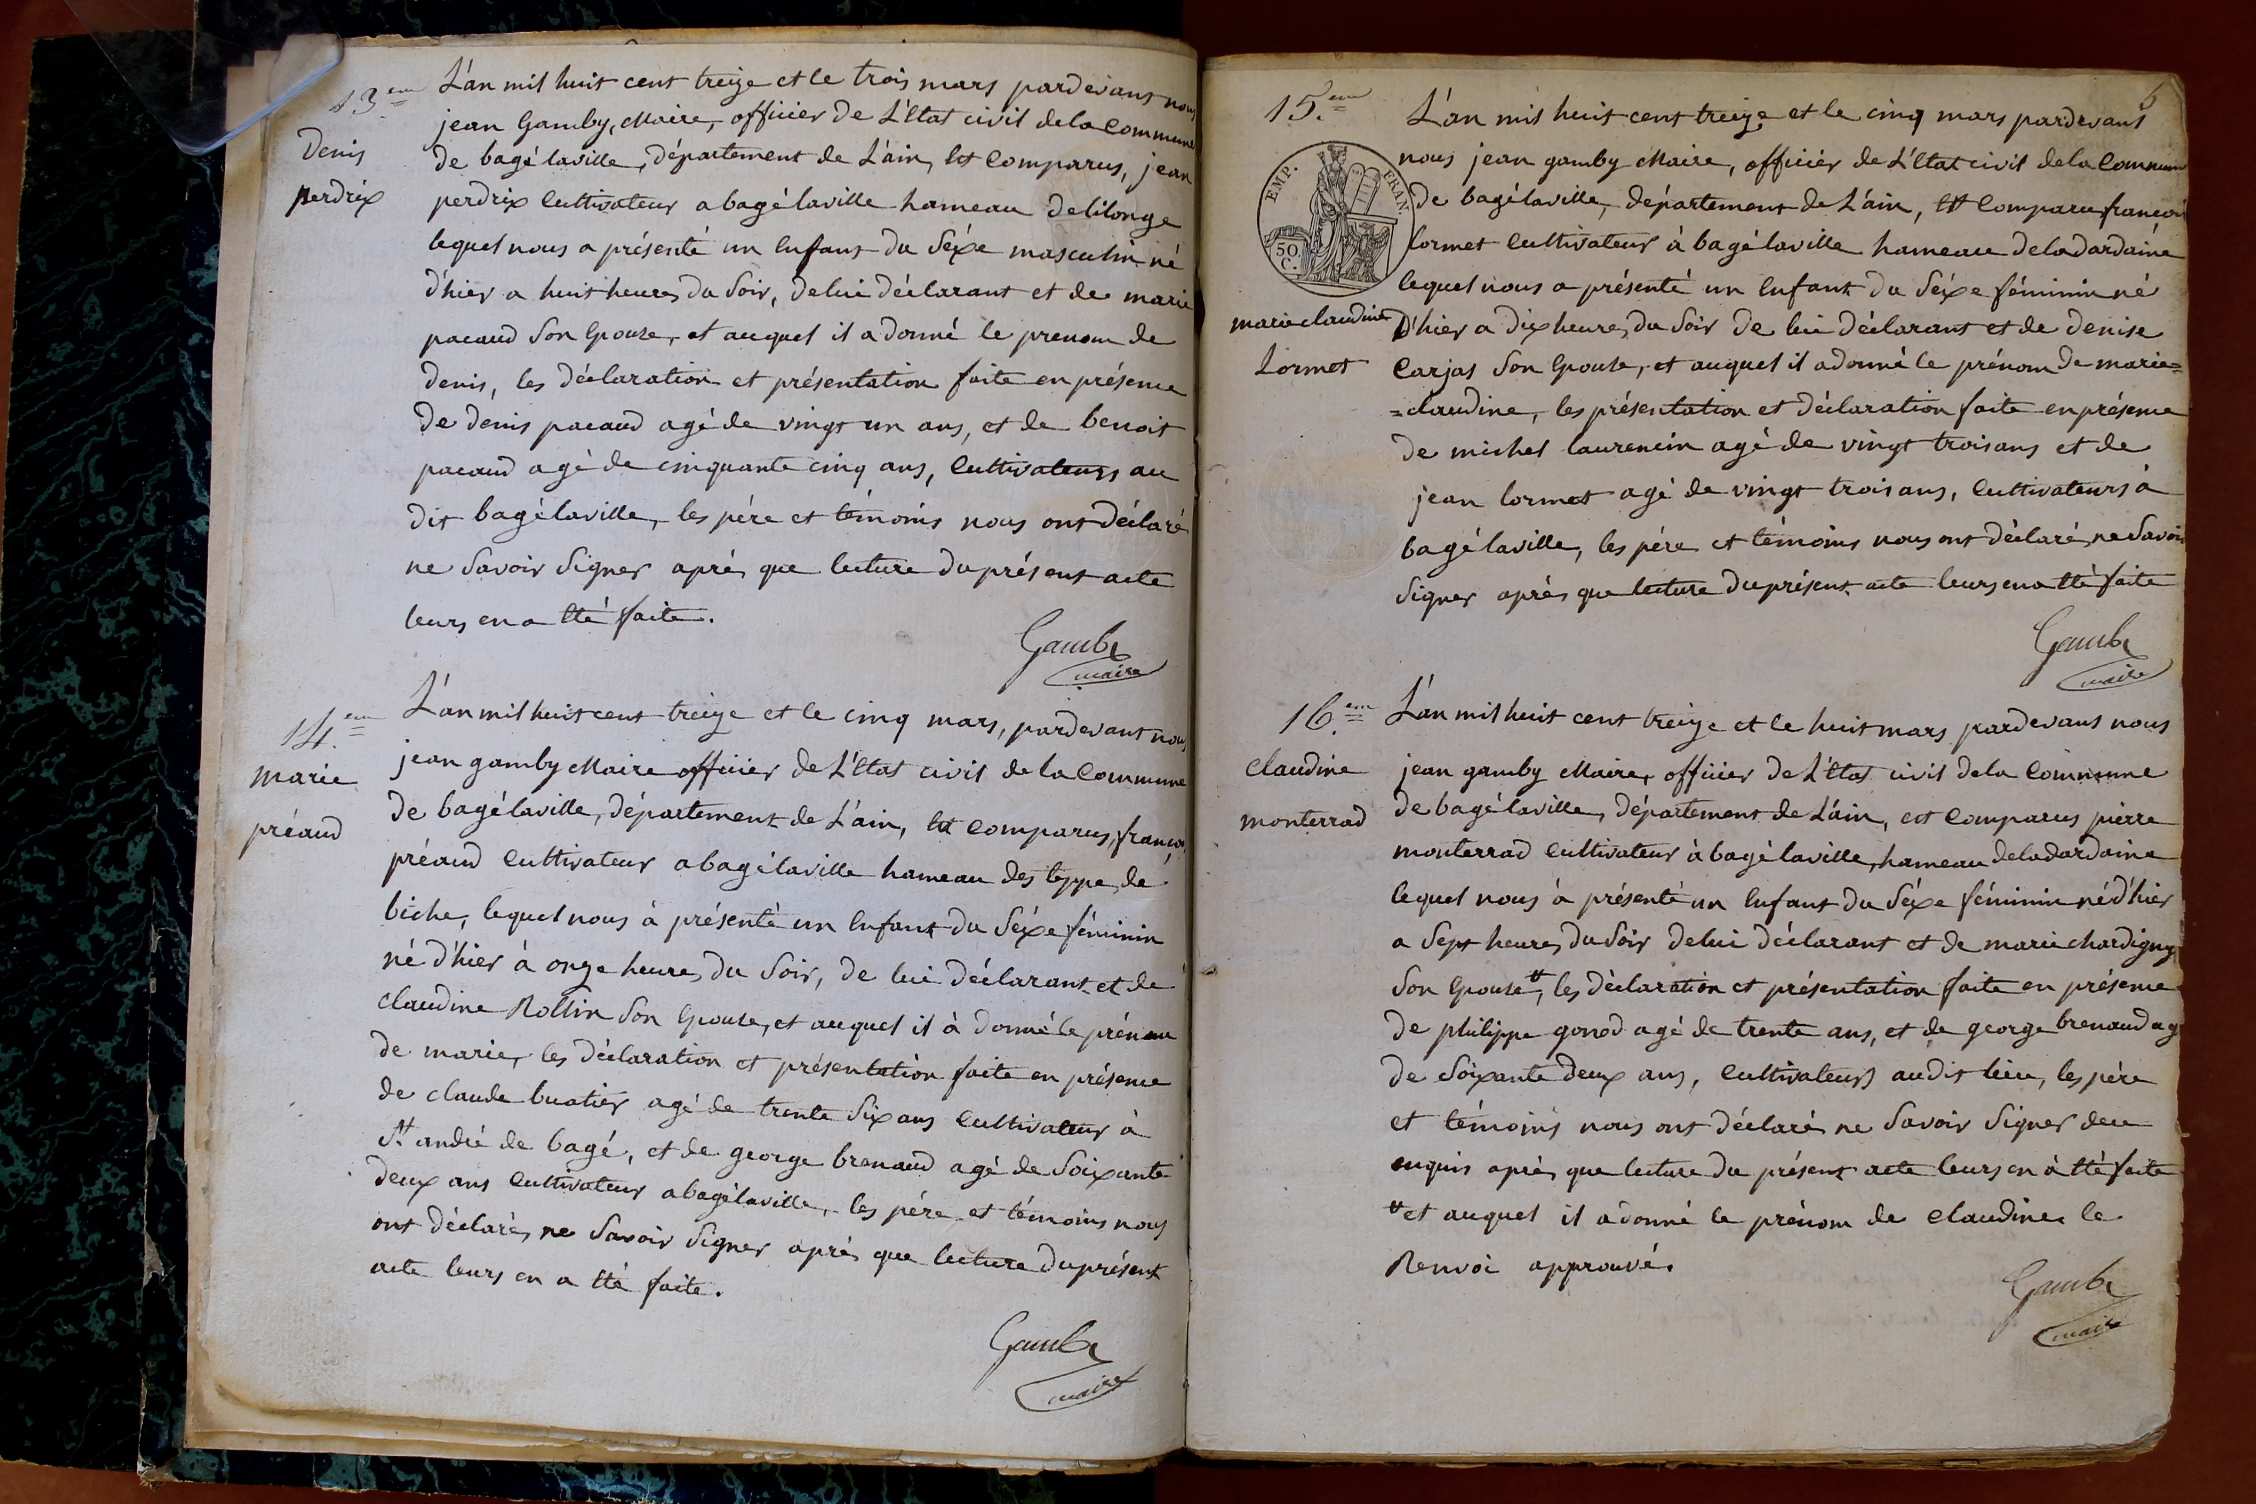 13.em
Denis
perdrix
L'an mil huit cent treize et le trois mars pardevant nous
jean Gamby, Maire, officier de L'Etat civil de la Commune
de bagélaville, département de L'ain, Est Comparus, jean
perdrix Cultivateur a bagélaville hameau delilonge
lequel nous a présenté un Enfant du Séxe masculin né
d'hier a huit heures du Soir, de lui déclarant et de marie
pacaud Son Epouse, et auquel il a donné le prenom de
denis, les déclaration et présentation faite en présence
de denis pacaud agé de vingt un ans, et de benoit
pacaud agé de cinquante cinq ans, Cultivateurs au
dit bagélaville, les pére et témoins nous ont déclaré
ne Savoir Signer aprés que lecture du présent acte
leurs en a Eté faite.
Gamby
maire
14.em
marie
préaud
L'an mil huit cent treize et le cinq mars, pardevant nous
jean gamby Maire officier de L'Etat civil de la Commune
de bagélaville, département de L'ain, Est Comparus, françois
préaud Cultivateur a bagélaville hameau des teppe de
biche, lequel nous à présenté un Enfant du Séxe féminin
né d'hier à onze heures du Soir, de lui déclarant et de
claudine Rollin Son Epouse, et auquel il à donné le prénom
de marie, les déclaration et présentation faite en présence
de claude buatier agé de trente Six ans Cultivateur à
St. andré de bagé, et de george brenaud agé de Soixante
deux ans Cultivateur a bagélaville, les pére et témoins nous
ont déclarés ne Savoir Signer aprés que lecture du présent
acte leurs en a Eté faite.
Gamby
maire
15.em
EMP. FRAN.
50
C.
marie claudine
Lormet
L'an mil huit cent treize et le cinq mars pardevant
nous jean gamby Maire, officier de L'Etat civil de la Commune
de bagélaville, département de L'ain, Est Comparu françois
lormet Cultivateur à bagélaville hameau de la dardaine
lequel nous a présenté un Enfant du Séxe féminin né
D'hier a dix heures du Soir de lui déclarant et de denise
Carjas Son Epouse, et auquel il a donné le prénom de marie=
=claudine, les présentation et déclaration faite en présence
de michel laurencin agé de vingt trois ans et de
jean lormet agé de vingt trois ans, Cultivateurs à
bagélaville, les pére et témoins nous ont déclarés ne Savoir
Signer aprés que lecture du présent acte leurs en a Eté faite
Gamby
maire
16.em
claudine
monterrad
L'an mil huit cent treize et le huit mars pardevant nous
jean gamby Maire, officier de L'Etat civil de la Commune
de bagélaville, département de L'ain, est Comparus pierre
monterrad Cultivateur à bagélaville, hameau de la dardaine
lequel nous à présenté un Enfant du Séxe féminin né d'hier
a Sept heures du Soir de lui déclarant et de marie chardigny
Son Epouse#, les déclaration et présentation faite en présence
de philippe gonod agé de trente ans, et de george brenaud ag
de Soixante deux ans, Cultivateurs audit lieu, les pére
et témoins nous ont déclarés ne Savoir Signer de ce
enquis aprés que lecture du présent acte leurs en à Eté faite
# et auquel il a donné le prénom de claudine le
Renvoi approuvé.
Gamby
maire